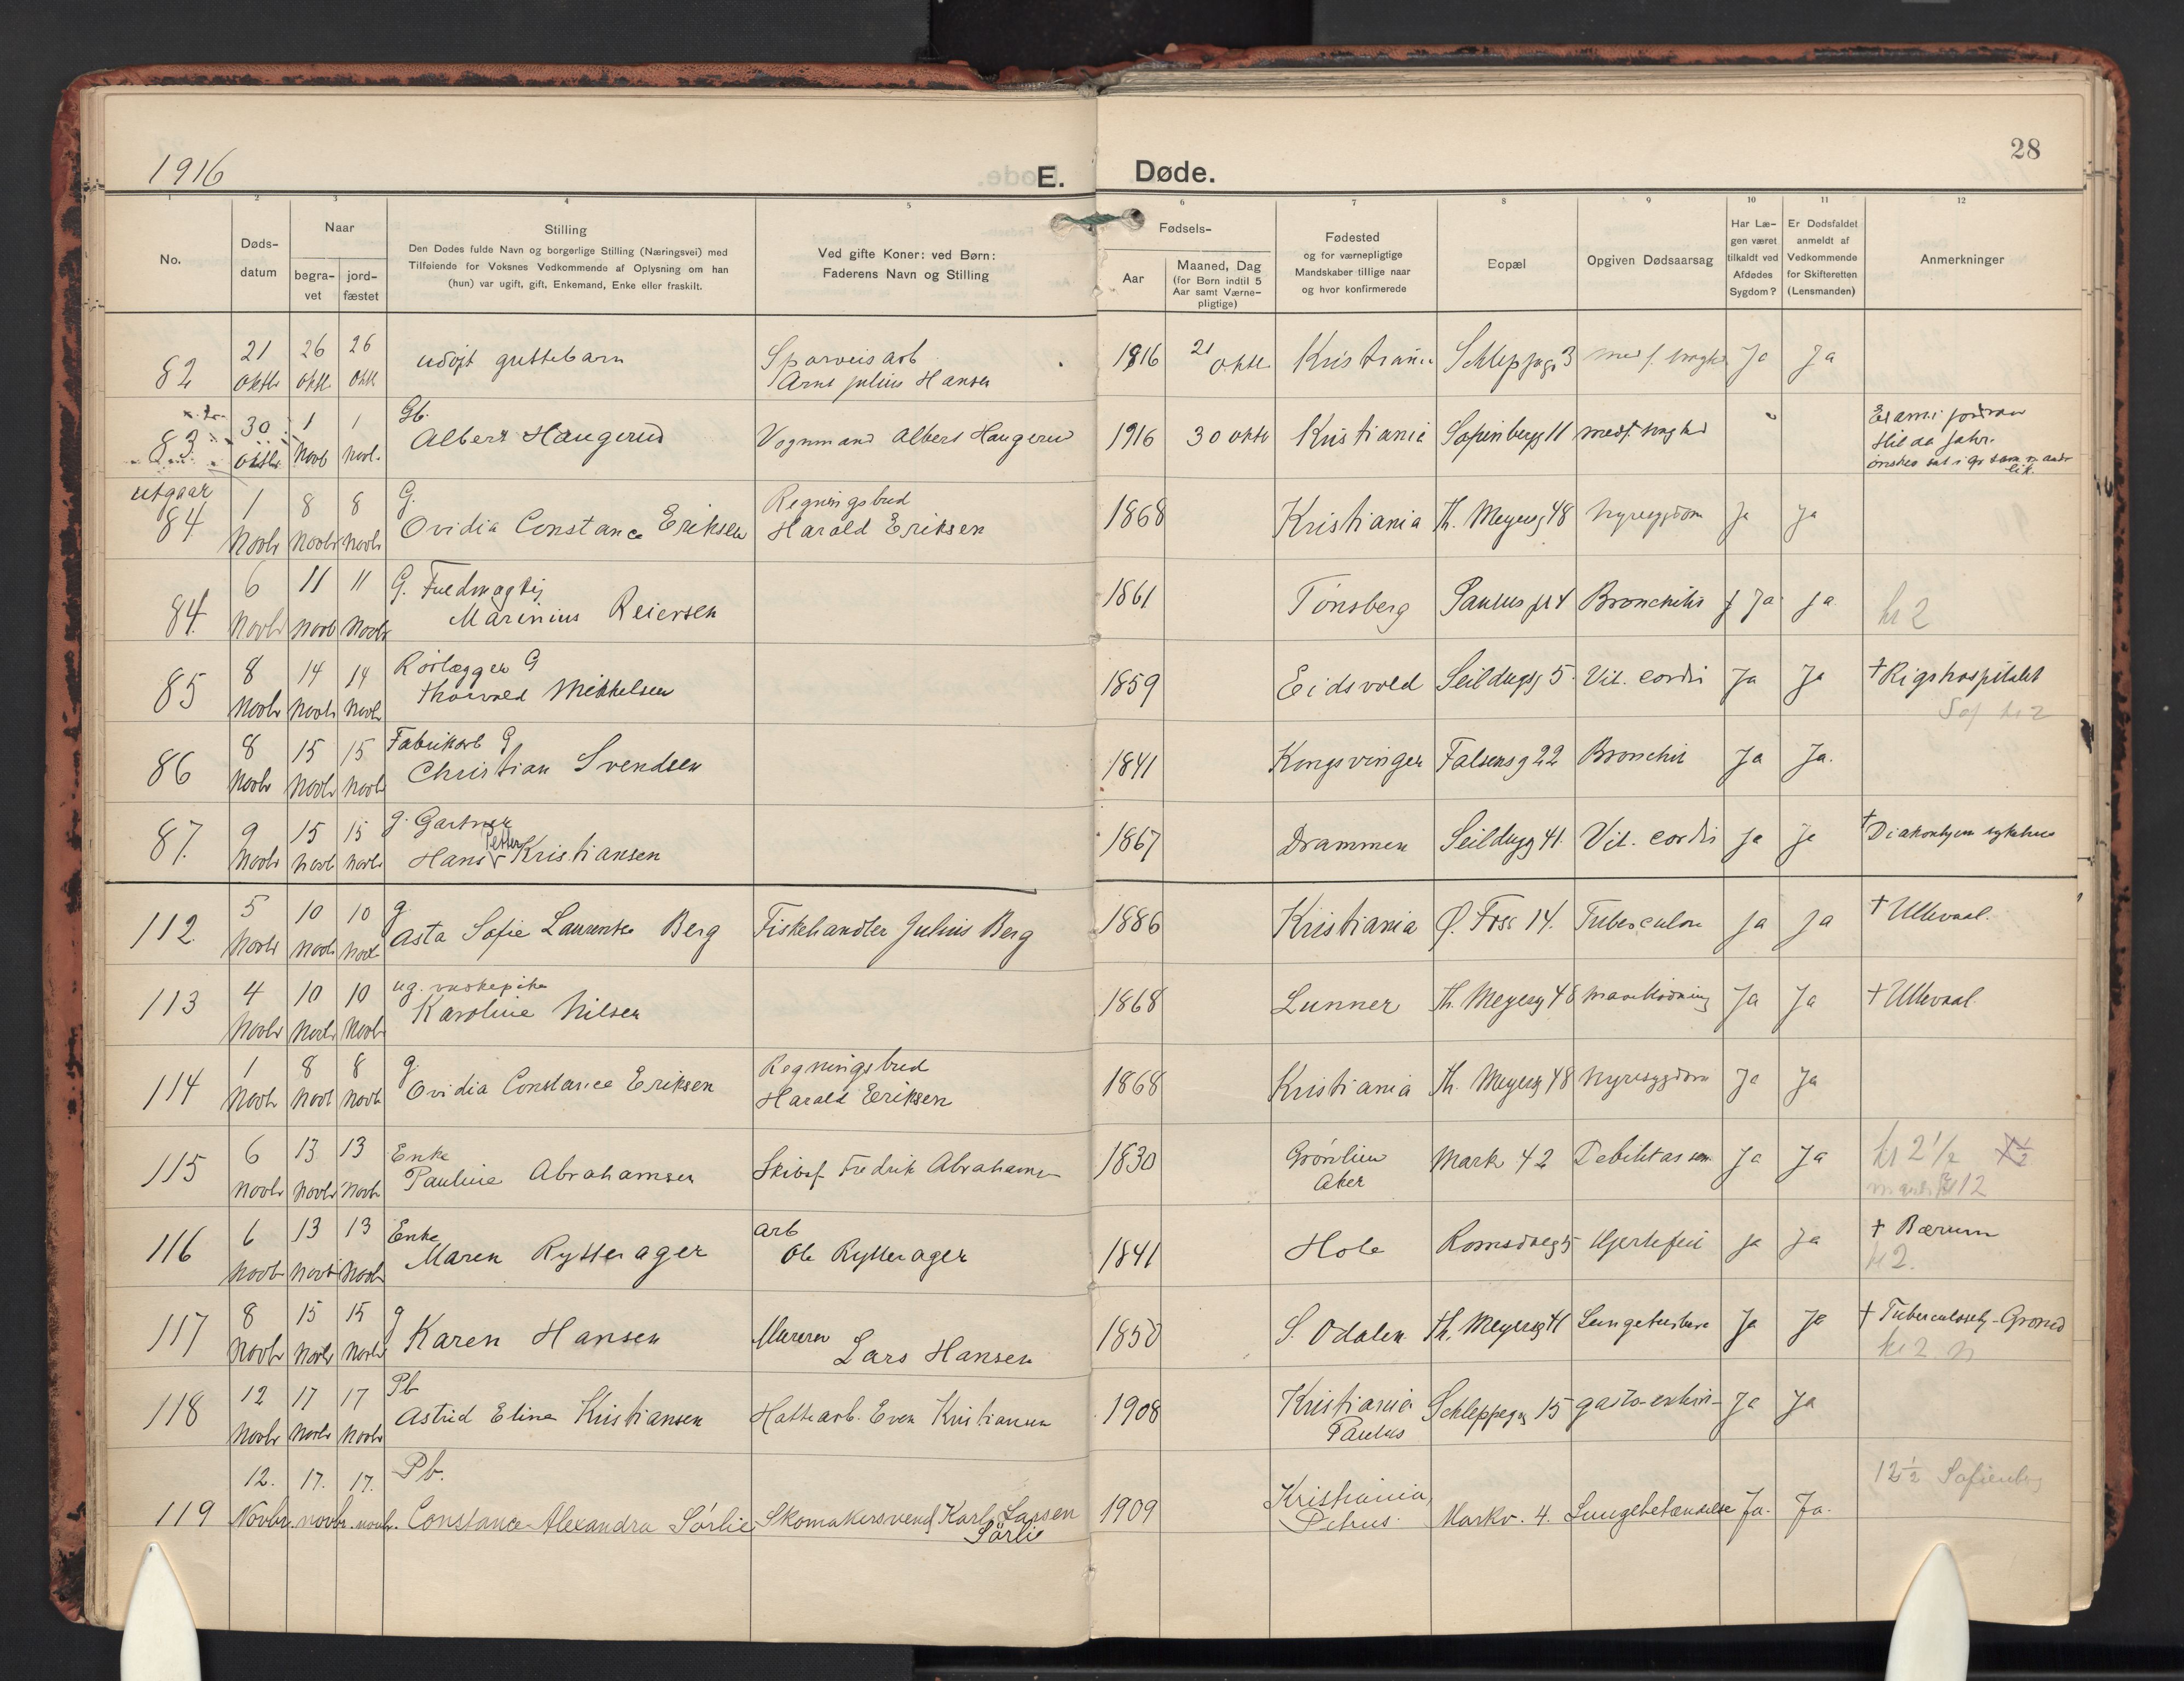 1916
E. Døde.
28
1 2 3 4 5 6 7 8 9 10 11 12
No.
Døds-
datum
Naar
begra-
vet
jord-
fæstet
Stilling
Den Dødes fulde Navn og borgerlige Stilling (Næringsvei) med
Tilføiende for Voksnes Vedkommende af Oplysning om han
(hun) var ugift, gift, Enkemand, Enke eller fraskilt.
Ved gifte Koner: ved Børn:
Faderens Navn og Stilling
Fødsels-
Aar
Maaned, Dag
(for Børn indtil 5
Aar samt Værne-
pligtige)
Fødested
og for værnepligtige
Mandskaber tillige naar
og hvor konfirmerede
Bopæl
Opgiven Dødsaarsag
Har Læ-
gen været
tilkaldt ved
Afdødes
Sygdom?
Er Dødsfaldet
anmeldt af
Vedkommende
for Skifteretten
(Lensmanden)
Anmerkninger
82 21 oktbr 26 oktb. 26 oktb udøpt guttebarn
Sporveisarb
Arne Julius Hansen
1916 21 oktb. Kristiania Schleppegr 3 medf svaghed Ja Ja
83 30 oktbr 1 Novb 1 Novb. Gb.
Albert Haugerud Vognmand Albert Haugerud 1916 30 oktb Kristiania Sofienbergg 11 medf. svaghed
utgaar
84 1 Novbr 8 Novbr 8 Novbr G.
Ovidia Constance Eriksen
Regningsbud
Harald Eriksen
1868 Kristiania Th. Meyersg 48 Nyresygdom Ja Ja
84. 6 Novbr 11 Novb 11 Novbr G. Fuldmægtig
Marinius Reiersen
1861 Tønsberg Paulus pl 4 Bronchitis Ja Ja kr 2
85 8 Novbr 14 Novbr 14 Novbr Rørlægger G
Thorvald Mikkelsen
1859 Eidsvold Seildugsg 5 Vit. cordis Ja Ja † Rigshospitalet
Sof kr 2
86 8 Novbr 15 Novbr 15 Novbr Fabrikarb G
Christian Svendsen
1841 Kongsvinger Falsensg 22 Bronchit Ja Ja.
87. 9 Novbr 15 Novb 15 Novbr g. Gartner
Hans Petter Kristiansen
1867 Drammen Seildugg 41. Vit. cordis Ja Ja † Diakonhjem sykehus
112 5 Novbr 10 Novb 10 Novb g
Asta Sofie Laurentse Berg Fiskehandler Julius Berg 1886 Kristiania Ø. Foss 14. Tuberculose Ja Ja † Ullevaal.
113 4 Novbr 10 Novbr 10 Novbr ug. vaskepike
Karoline Nilsen
1868 Lunner Th. Meyersg 48 Maveblødning Ja Ja † Ullevaal.
114 1 Novbr 8 Novb 8 Novb g
Ovidia Constance Eriksen
Regningsbud
Harald Eriksen
1868 Kristiania Th. Meyersg 48 Nyresygdom Ja Ja
115 6 Novbr 13 Novbr 13 Novbr Enke
Pauline Abrahamsen Skibsf Fredrik Abrahamsen 1830 Grønlien
Aker
Mark 42 Debilitas sen. Ja Ja kr 2 1/2
116 6 Novbr 13 Novbr 13 Novbr Enke
Maren Rytterager
arb
Ole Rytterager
1841 Hole Romsdalsg 5 Hjertefeil Ja Ja † Bærum
kr 2.
117 8 Novbr 15 Novbr 15 Novbr g
Karen Hansen Murerm
Lars Hansen
1850 S. Odalen Th. Meyersg 41 Lungetuberkul Ja Ja † Tuberculosehj-Grorud
kr 2
118 12 Novbr 17 Novbr 17 Novbr Pb
Astrid Eline Kristiansen Hatte arb. Even Kristiansen 1908 Kristiania
Paulus
Schleppegr 15 gastro-enterit- Ja Ja
119 12. Novbr. 17. novbr. 17. novbr. Pb.
Constance Alexandra Sørlie Skomakersvend Karl Larsen
Sørlie
1909 Kristiania,
Petrus.
Markv. 4. Lungebetændelse Ja. Ja. 12 1/2 Sofienberg